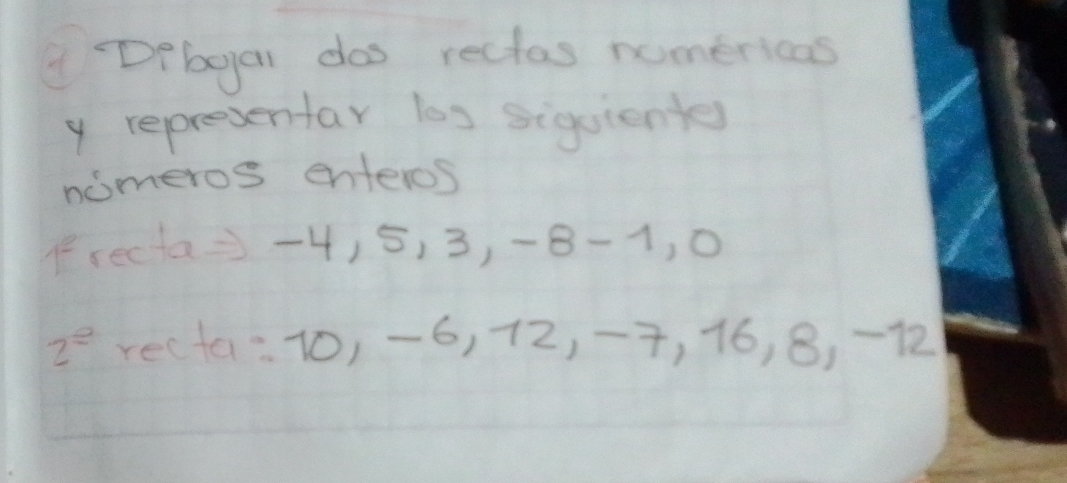 1 Dibujar dos rectas numéricas
y representar los siguientes
números enteros
1º recta ⇒ -4, 5, 3, -8 -1, 0
2º recta: 10, -6, 12, -7, 16, 8, -12